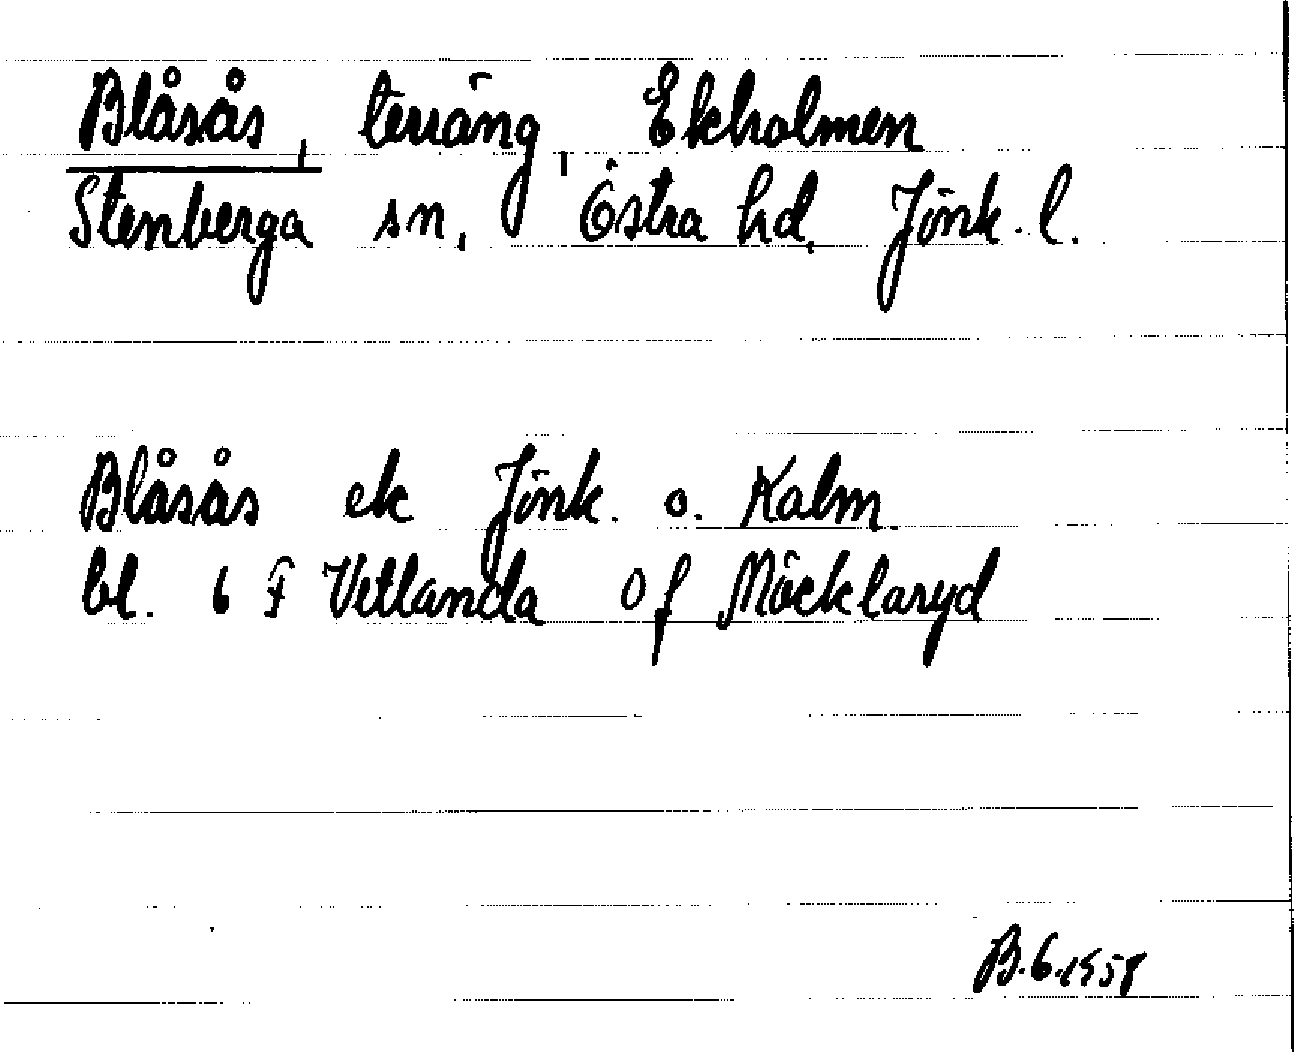 Blåsås, terräng, Ekholmen
Stenberga sn, Östra hd, Jönk. l.
Blåsås ek Jönk. o. Kalm.
bl. 6 F Vetlanda Of Möcklaryd
B.G.1958